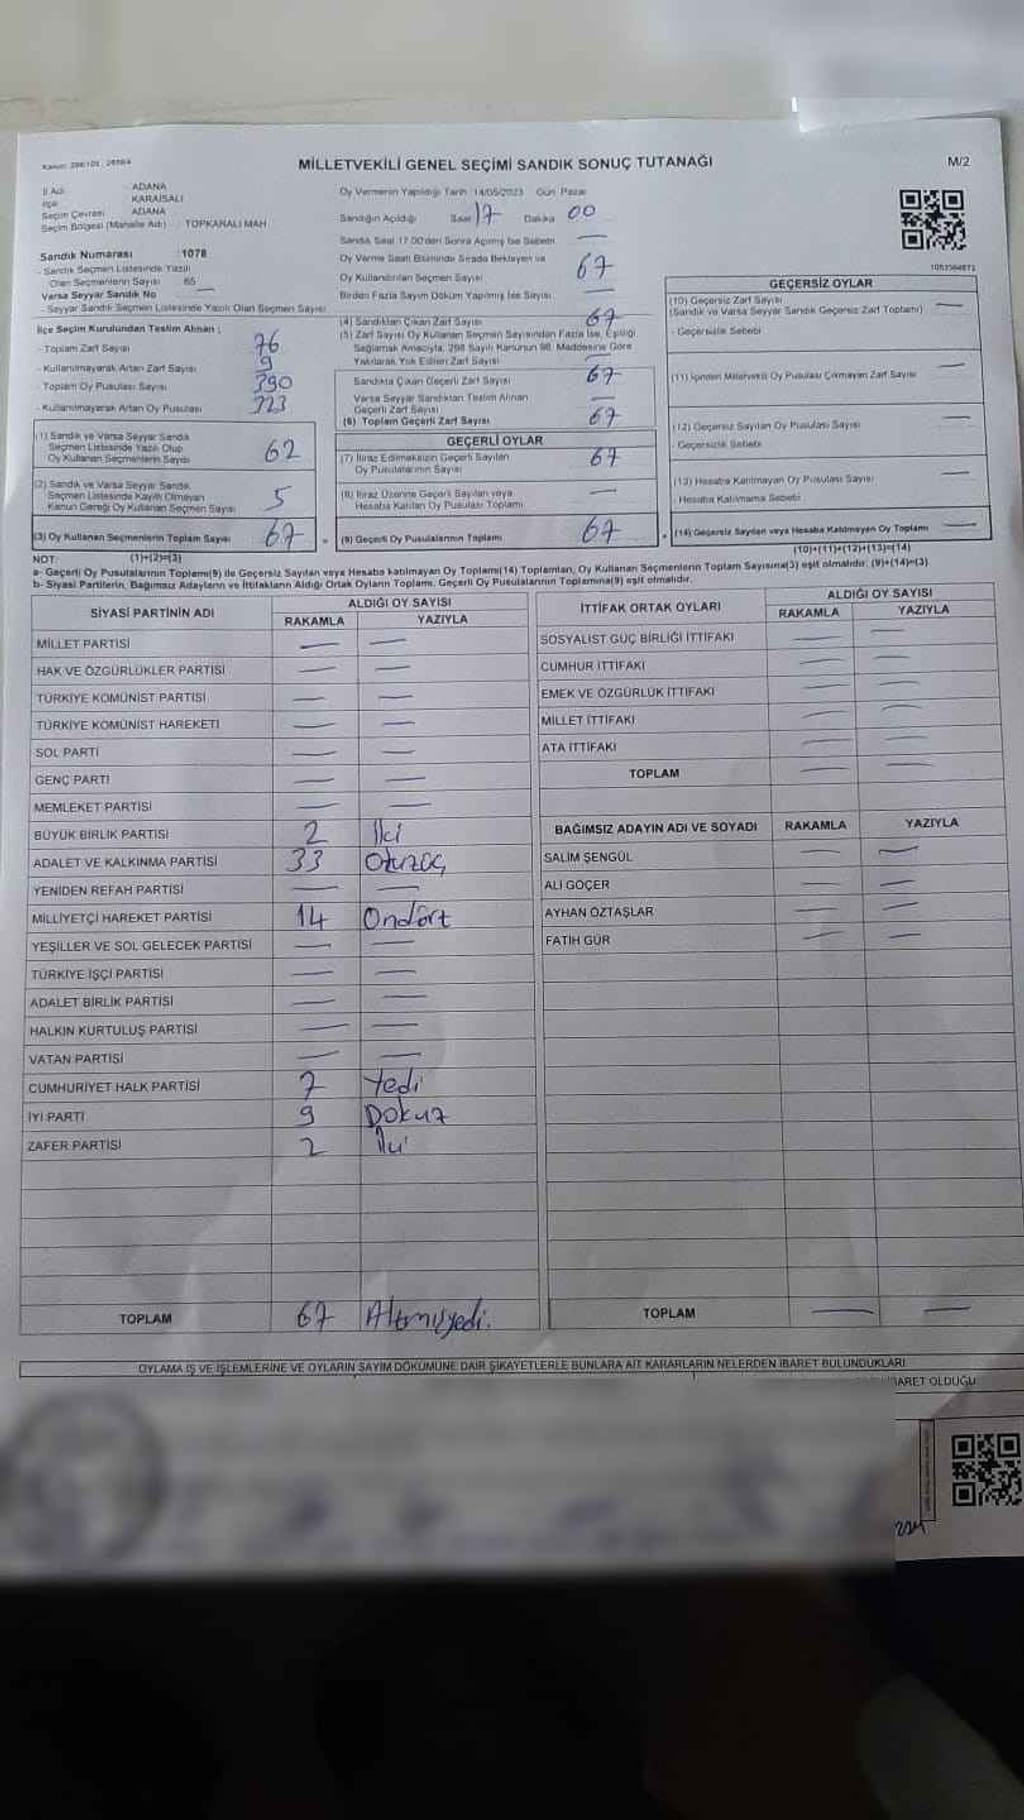 MİLLETVEKİLİ GENEL SEÇİMİ SANDIK SONUÇ TUTANAĞI
M/2
İl Adı ADANA
İlçe KARAİSALI
Seçim Çevresi ADANA
Seçim Bölgesi (Mahalle Adı) : TOPKARALI MAH
Sandık Numarası : 1078
- Sandık Seçmen Listesinde Yazılı
Olan Seçmenlerin Sayısı 65
Varsa Seyyar Sandık No —
- Seyyar Sandık Seçmen Listesinde Yazılı Olan Seçmen Sayısı
İlçe Seçim Kurulundan Teslim Alınan :
- Toplam Zarf Sayısı 76
- Kullanılmayarak Artan Zarf Sayısı 9
- Toplam Oy Pusulası Sayısı 390
- Kullanılmayarak Artan Oy Pusulası 323
(1) Sandık ve Varsa Seyyar Sandık
Seçmen Listesinde Yazılı Olup
Oy Kullanan Seçmenlerin Sayısı 62
(2) Sandık ve Varsa Seyyar Sandık
Seçmen Listesinde Kayıtlı Olmayan
Kanun Gereği Oy Kullanan Seçmen Sayısı 5
(3) Oy Kullanan Seçmenlerin Toplam Sayısı 67
Oy Vermenin Yapıldığı Tarih 14/05/2023 Gün Pazar
Sandığın Açıldığı Saat 17 Dakika 00
Sandık Saat 17.00'den Sonra Açılmış İse Sebebi —
Oy Verme Saati Bitiminde Sırada Bekleyen ve
Oy Kullandırılan Seçmen Sayısı 67
Birden Fazla Sayım Döküm Yapılmış İse Sayısı —
(4) Sandıktan Çıkan Zarf Sayısı 67
(5) Zarf Sayısı Oy Kullanan Seçmen Sayısından Fazla İse, Eşitliği
Sağlamak Amacıyla, 298 Sayılı Kanunun 98. Maddesine Göre
Yakılarak Yok Edilen Zarf Sayısı —
Sandıkta Çıkan Geçerli Zarf Sayısı 67
Varsa Seyyar Sandıktan Teslim Alınan
Geçerli Zarf Sayısı —
(6) Toplam Geçerli Zarf Sayısı 67
GEÇERLİ OYLAR
(7) İtiraz Edilmeksizin Geçerli Sayılan
Oy Pusulalarının Sayısı 67
(8) İtiraz Üzerine Geçerli Sayılan veya
Hesaba Katılan Oy Pusulası Toplamı —
(9) Geçerli Oy Pusulalarının Toplamı 67
GEÇERSİZ OYLAR
(10) Geçersiz Zarf Sayısı
(Sandık ve Varsa Seyyar Sandık Geçersiz Zarf Toplamı) —
- Geçersizlik Sebebi
(11) İçinden Milletvekili Oy Pusulası Çıkmayan Zarf Sayısı —
(12) Geçersiz Sayılan Oy Pusulası Sayısı —
- Geçersizlik Sebebi
(13) Hesaba Katılmayan Oy Pusulası Sayısı —
- Hesaba Katılmama Sebebi
(14) Geçersiz Sayılan veya Hesaba Katılmayan Oy Toplamı —
NOT: (1)+(2)=(3)
(10)+(11)+(12)+(13)=(14)
a- Geçerli Oy Pusulalarının Toplamı(9) ile Geçersiz Sayılan veya Hesaba katılmayan Oy Toplamı(14) Toplamları, Oy Kullanan Seçmenlerin Toplam Sayısına(3) eşit olmalıdır. (9)+(14)=(3)
b- Siyasi Partilerin, Bağımsız Adayların ve İttifakların Aldığı Ortak Oyların Toplamı, Geçerli Oy Pusulalarının Toplamına(9) eşit olmalıdır.
SİYASİ PARTİNİN ADI
ALDIĞI OY SAYISI
RAKAMLA YAZIYLA
MİLLET PARTİSİ — —
HAK VE ÖZGÜRLÜKLER PARTİSİ — —
TÜRKİYE KOMÜNİST PARTİSİ — —
TÜRKİYE KOMÜNİST HAREKETİ — —
SOL PARTİ — —
GENÇ PARTİ — —
MEMLEKET PARTİSİ — —
BÜYÜK BİRLİK PARTİSİ 2 İki
ADALET VE KALKINMA PARTİSİ 33 Otuzüç
YENİDEN REFAH PARTİSİ — —
MİLLİYETÇİ HAREKET PARTİSİ 14 Ondört
YEŞİLLER VE SOL GELECEK PARTİSİ — —
TÜRKİYE İŞÇİ PARTİSİ — —
ADALET BİRLİK PARTİSİ — —
HALKIN KURTULUŞ PARTİSİ — —
VATAN PARTİSİ — —
CUMHURİYET HALK PARTİSİ 7 Yedi
İYİ PARTİ 9 Dokuz
ZAFER PARTİSİ 2 İki
TOPLAM 67 Altmışyedi.
İTTİFAK ORTAK OYLARI
ALDIĞI OY SAYISI
RAKAMLA YAZIYLA
SOSYALİST GÜÇ BİRLİĞİ İTTİFAKI — —
CUMHUR İTTİFAKI — —
EMEK VE ÖZGÜRLÜK İTTİFAKI — —
MİLLET İTTİFAKI — —
ATA İTTİFAKI — —
TOPLAM — —
BAĞIMSIZ ADAYIN ADI VE SOYADI RAKAMLA YAZIYLA
SALİM ŞENGÜL — —
ALİ GÖÇER — —
AYHAN ÖZTAŞLAR — —
FATİH GÜR — —
TOPLAM — —
OYLAMA İŞ VE İŞLEMLERİNE VE OYLARIN SAYIM DÖKÜMÜNE DAİR ŞİKAYETLERLE BUNLARA AİT KARARLARIN NELERDEN İBARET BULUNDUKLARI
BARET OLDUĞU